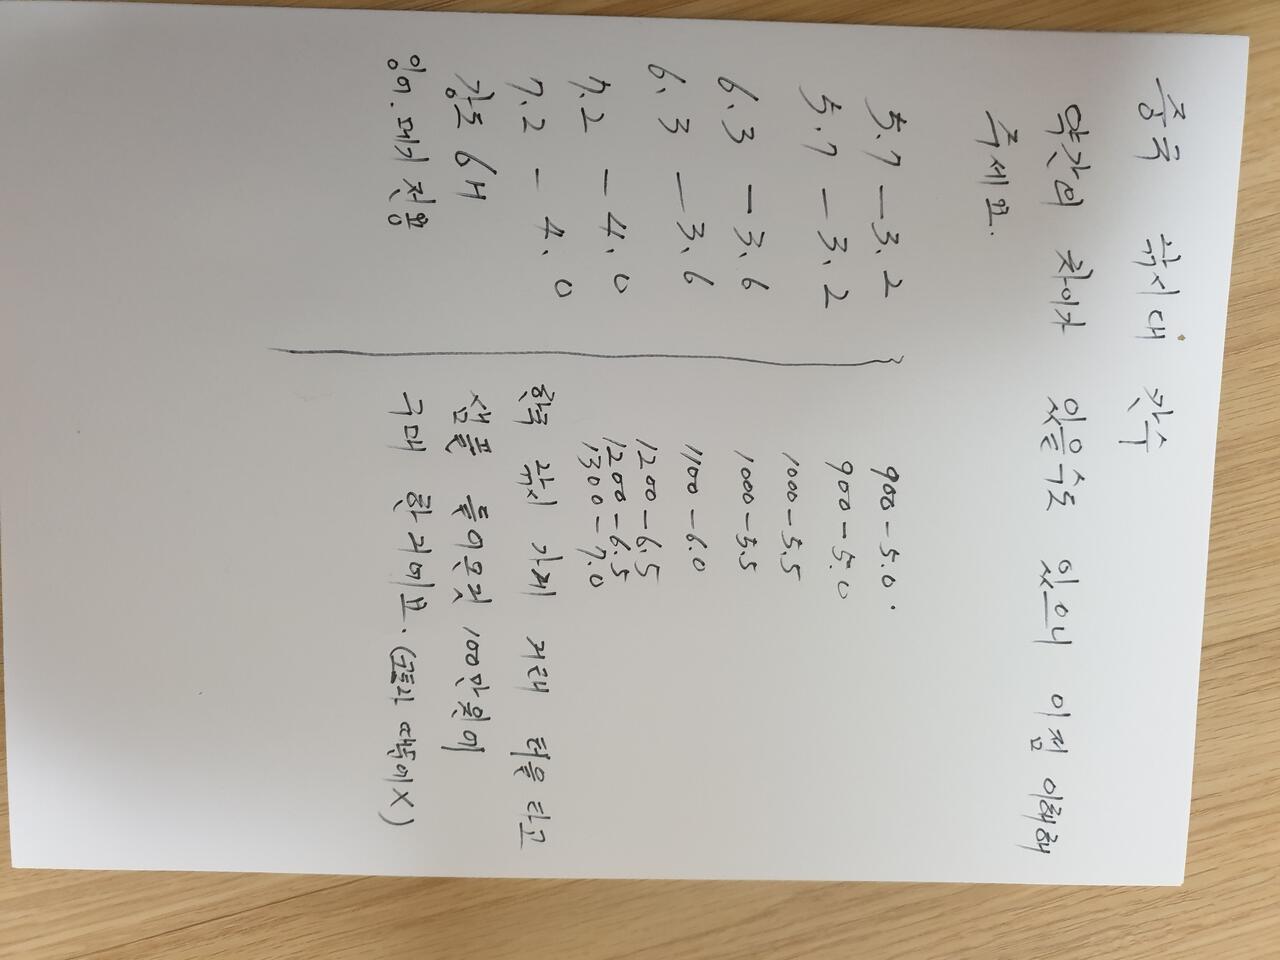 중국 낚시대 칸수
약간의 차이가 있을수도 있으니 이점 이해해
주세요.
5.7 - 3.2
5.7 - 3.2
6.3 - 3.6
6.3 - 3.6
7.2 - 4.0
7.2 - 4.0
강도 6H
잉어. 대기 전용
900 - 5.0.
900 - 5.0
1000 - 5.5
1000 - 5.5
1100 - 6.0
1200 - 6.5
1200 - 6.5
1300 - 7.0
한국 낚시 가게 거래 터을라고
샘플 들어온것 100만원어
구매 한거에요. (코로나 때문에X)